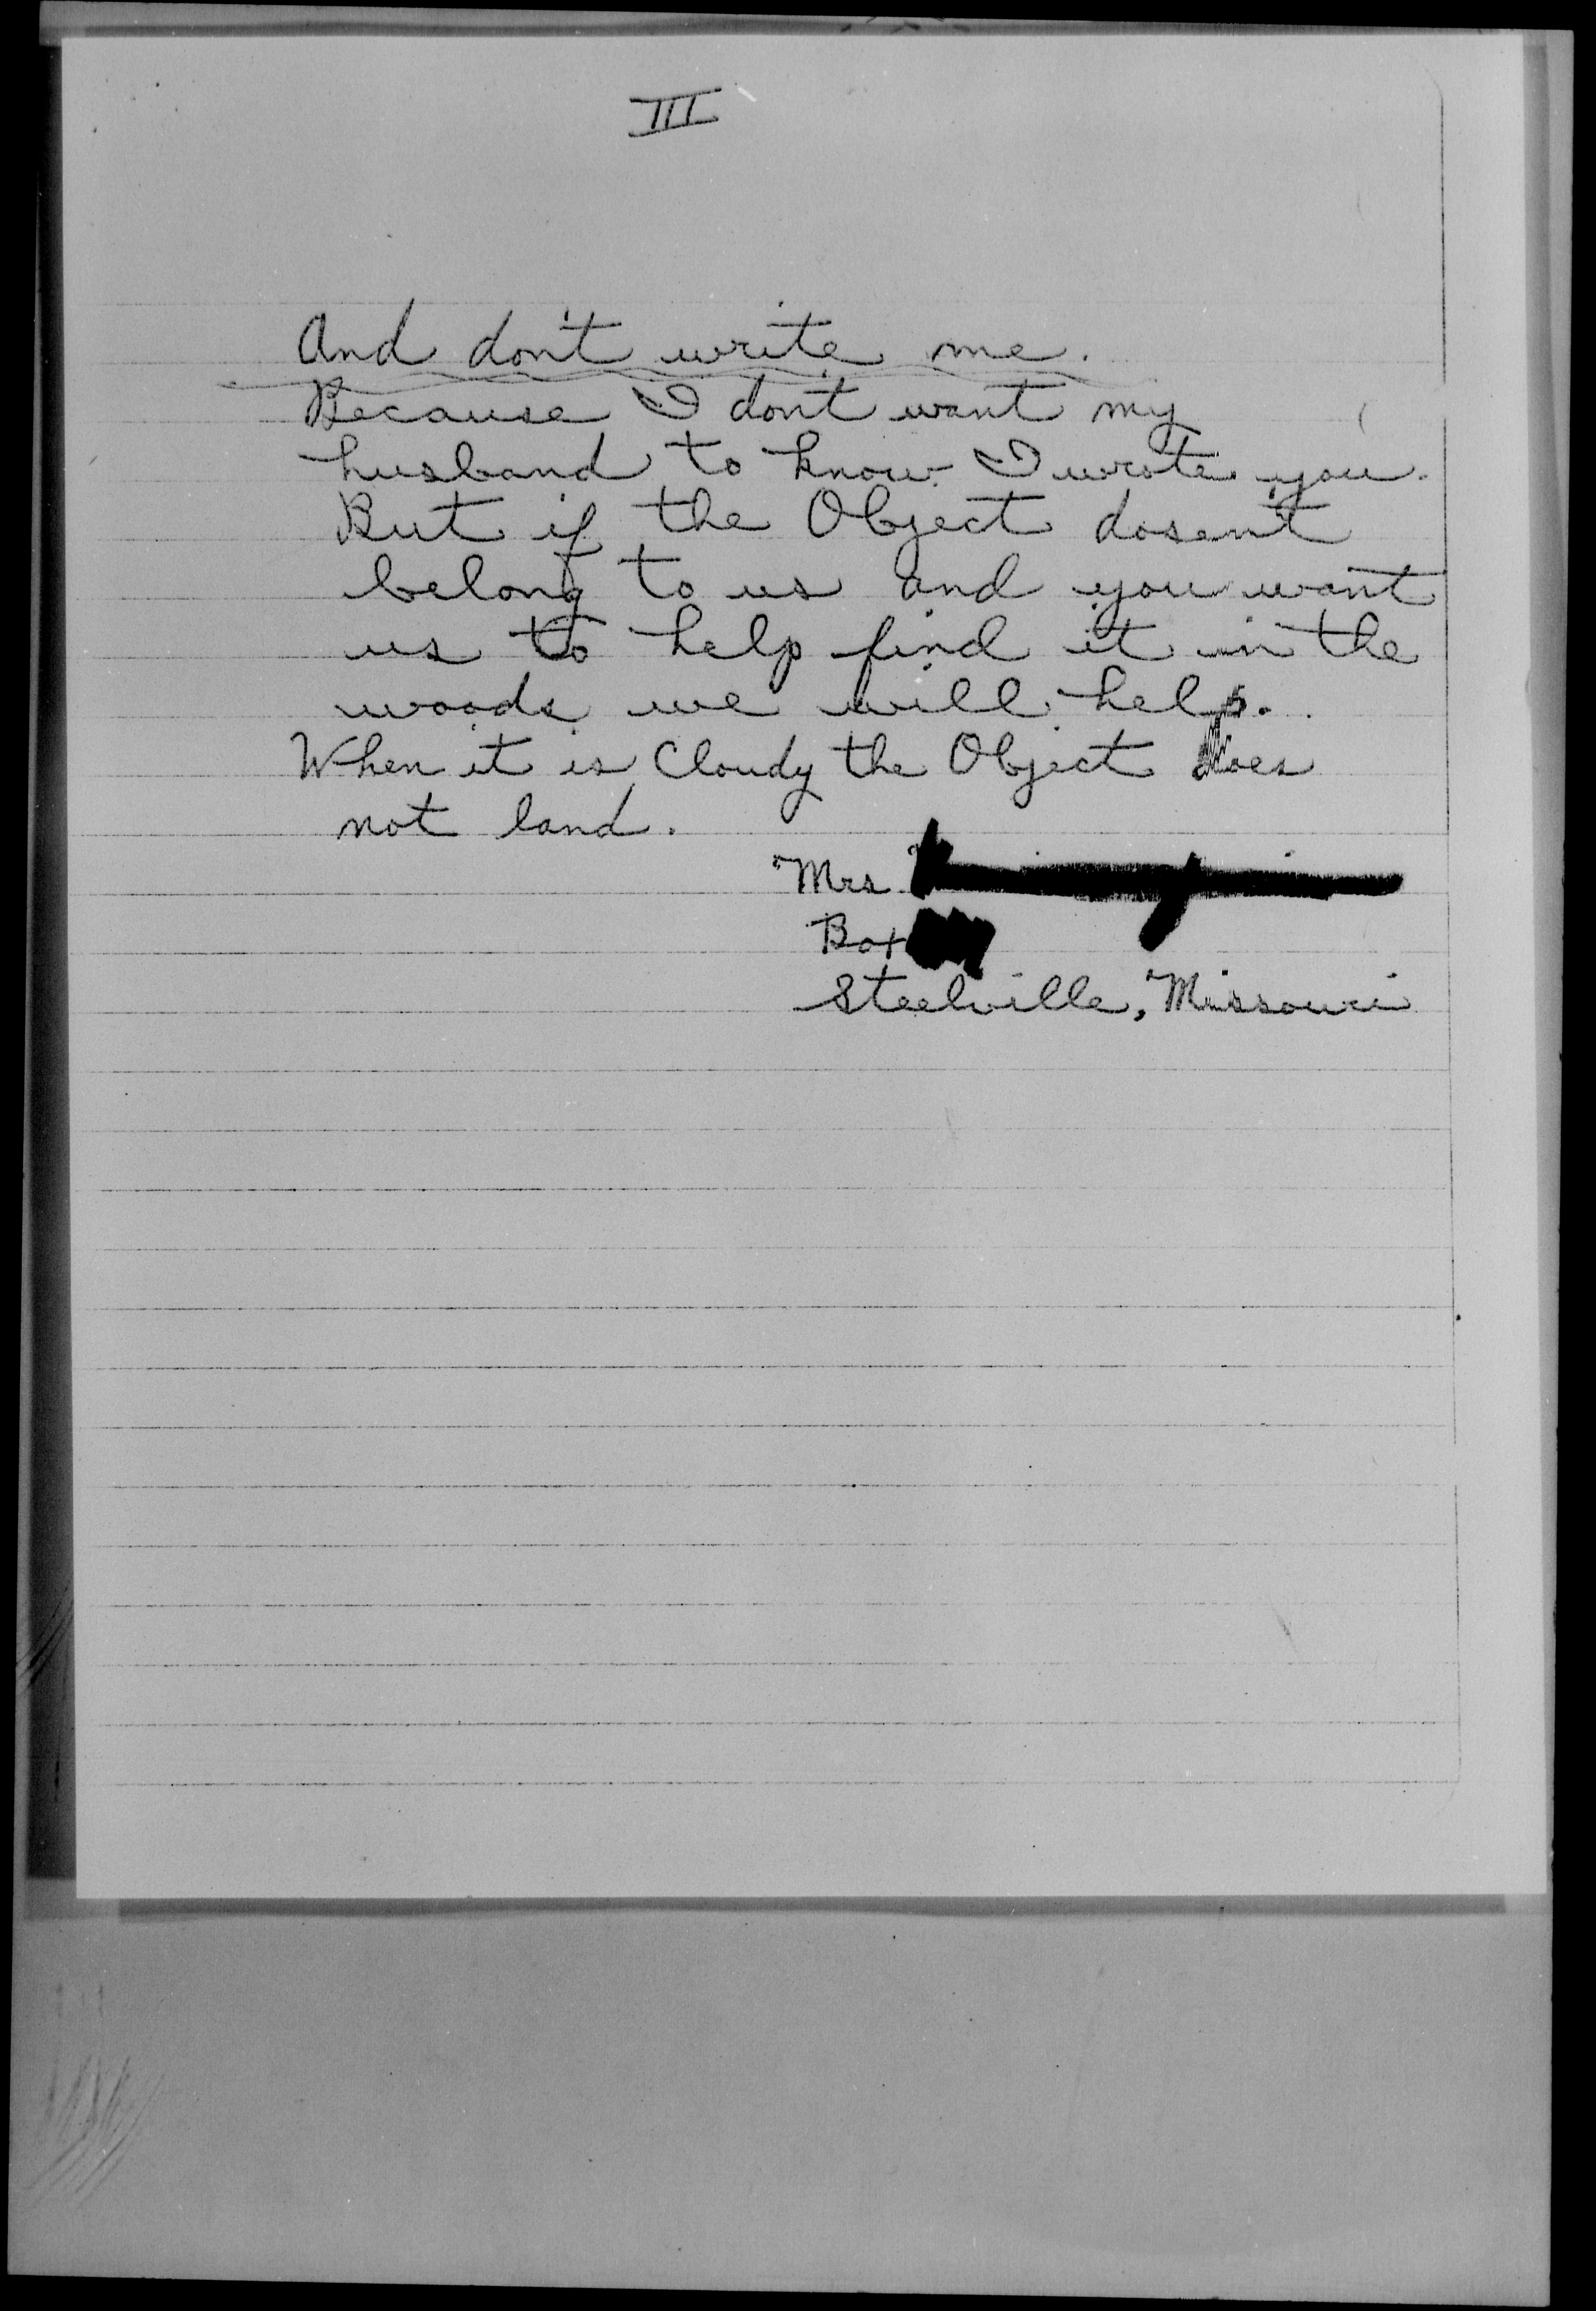 III
And don't write me.
Because I don't want my
husband to know I wrote you.
But if the Object dosen't
belong to us and you want
us to help find it in the
woods we will help.
When it is Cloudy the Object does
not land.
Mrs
Box
Steelville, Missouri